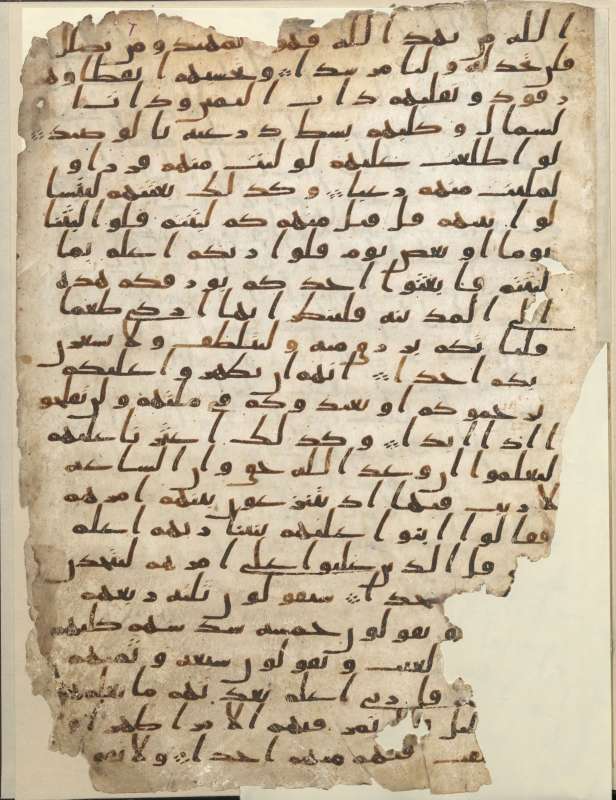 الله من يهد الله فهو المهتد ومن يضلل
فلن تجد له وليا مرشدا وتحسبهم ايقظا وهم
رقود ونقلبهم ذات اليمين وذات ا
لشمال وكلبهم بسط ذرعيه بالوصيد
لو اطلعت عليهم لوليت منهم فررا و
لملئت منهم رعبا وكذلك بعثنهم ليتسا
لوا بينهم قل قيل منهم كم لبثتم قلوا لبثنا
يوما او بعض يوم قلوا ربكم اعلم بما
لبثتم فابعثوا احدكم بورقكم هذه
الى المدينة فلينظر ايها ازكى طعما
فلياتكم برزق منه وليتلطف ولا يشعرن
بكم احدا انهم ان يظهروا عليكم
يرجموكم او يعيدوكم في ملتهم ولن تفلحو
ا اذا ابدا وكذلك اعثرنا عليهم
ليعلموا ان وعد الله حق وان الساعة
لا ريب فيها اذ يتنزعون بينهم امرهم
فقالوا ابنوا عليهم بنينا ربهم اعلم
قال الذين غلبوا على امرهم لنتخذن
جدا سيقولون ثلثة ربعهم
ويقولون خمسة سدسهم كلبهم
لغيب ويقولون سبعة وثمنهم
قل ربي اعلم بعدتهم ما يعلمهم
ليل فلا تمر فيهم الا مرا ظهرا و
فيهم منهم احدا ولا تقو